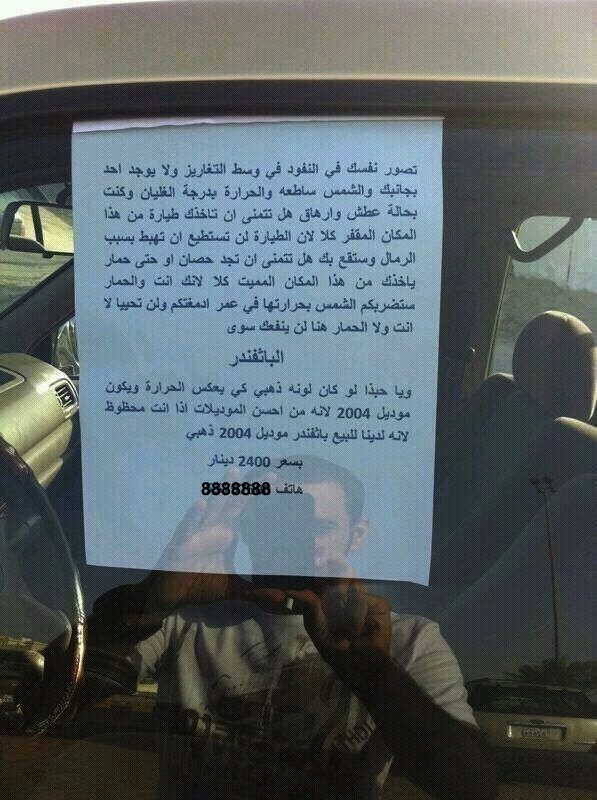 تصور نفسك في النفود في وسط التغاريز ولا يوجد احد
بجانبك والشمس ساطعه والحرارة بدرجة الغليان وكنت
بحالة عطش وارهاق هل تتمنى ان تاخذك طيارة من هذا
المكان المقفر كلا لان الطيارة لن تستطيع ان تهبط بسبب
الرمال وستقع بك هل تتمنى ان تجد حصان او حتى حمار
ياخذك من هذا المكان المميت كلا لانك انت والحمار
ستضربكم الشمس بحرارتها في عمر ادمغتكم ولن تحييا لا
انت ولا الحمار هنا لن ينفعك سوى
الباثفندر
ويا حبذا لو كان لونه ذهبي كي يعكس الحرارة ويكون
موديل 2004 لانه من احسن الموديلات اذا انت محظوظ
لانه لدينا للبيع باثفندر موديل 2004 ذهبي
بسعر 2400 دينار
هاتف 8888888